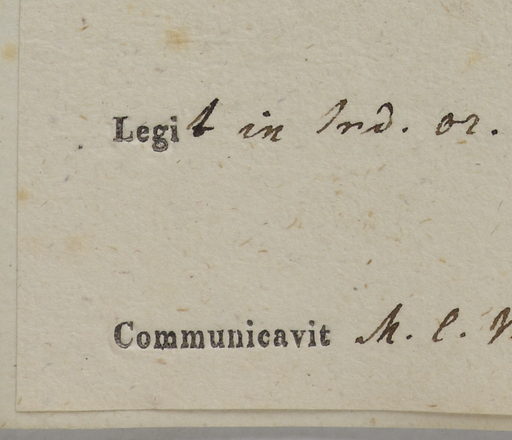 Legit in Ind. or.
Communicavit M. C. V